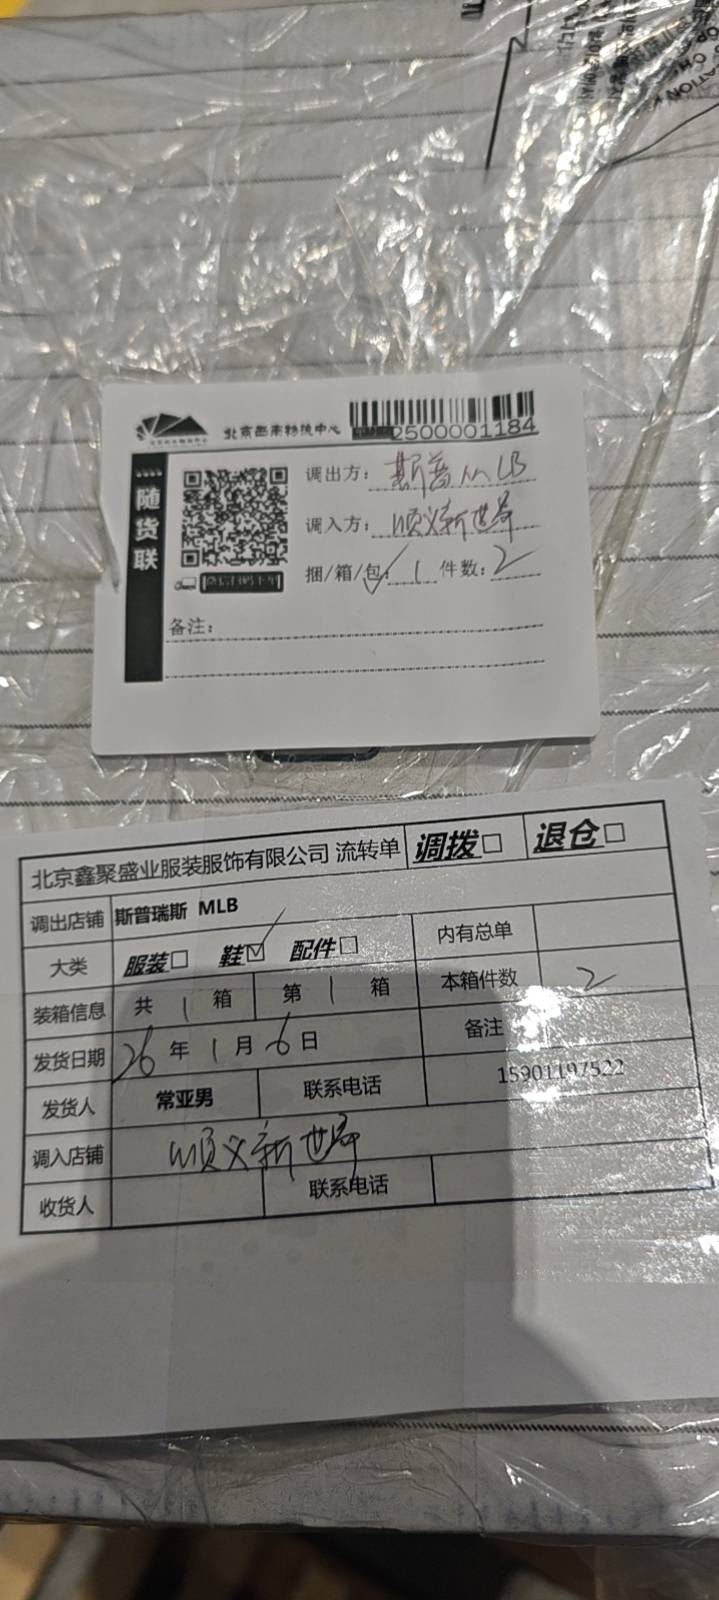 北京西南物流中心
2500001184
随货联
调出方：斯普MLB
调入方：顺义新世界
捆/箱/包：1 件数：2
备注：
北京鑫聚盛业服装服饰有限公司 流转单 调拨□ 退仓□
调出店铺 斯普瑞斯 MLB
大类 服装□ 鞋☑ 配件□ 内有总单
装箱信息 共 1 箱 第 1 箱 本箱件数 2
发货日期 26年 1月 6日 备注
发货人 常亚男 联系电话 15901197522
调入店铺 顺义新世界
收货人 联系电话